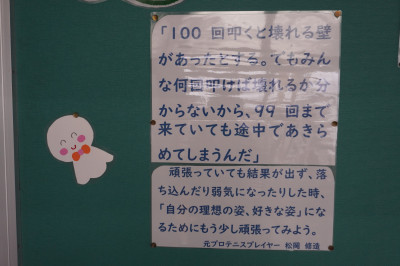 「100 回叩くと壊れる壁
があったとする。でもみん
な何回叩けば壊れるか分
からないから、99 回まで
来ていても途中であきら
めてしまうんだ」
頑張っていても結果が出ず、落
ち込んだり弱気になったりした時、
「自分の理想の姿、好きな姿」にな
るためにもう少し頑張ってみよう。
元プロテニスプレイヤー 松岡 修造